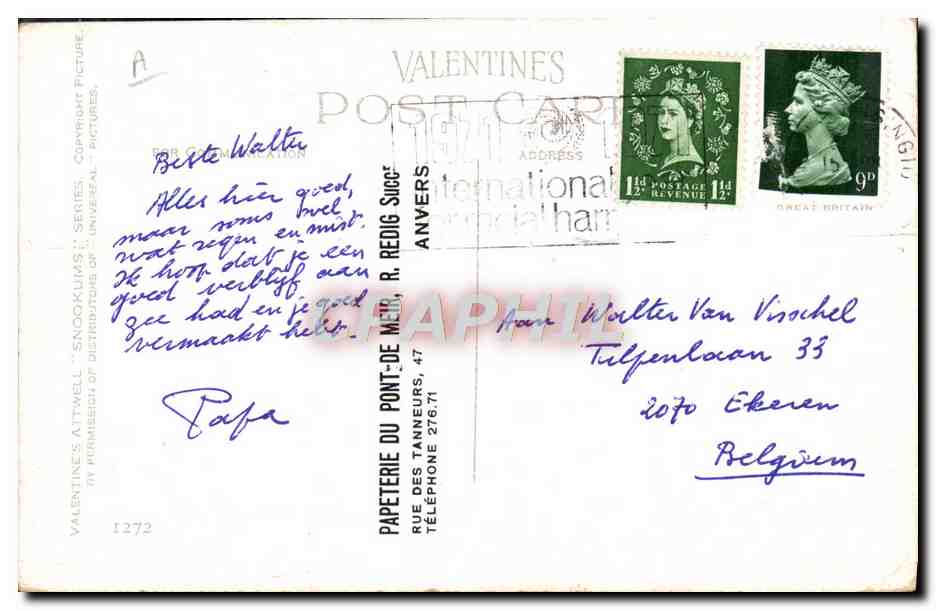 A
VALENTINE'S
POST CARD
FOR COMMUNICATION
ADDRESS
VALENTINE'S ATTWELL "SNOOKUMS" SERIES. COPYRIGHT PICTURE.
BY PERMISSION OF DISTRIBUTORS OF "UNIVERSEAL" PICTURES.
Beste Walter
Alles hier goed,
maar soms wel
wat regen en mist.
Ik hoop dat je een
goed verblijf aan
zee had en je goed
vermaakt hebt.
Papa
1272
PAPETERIE DU PONT-DE MEIR, R. REDIG Succr
ANVERS
RUE DES TANNEURS, 47
TÉLÉPHONE 276.71
1971
international
racial harm
1½D POSTAGE REVENUE 1½D
9D
GREAT BRITAIN
CPAPHIL
Aan Walter Van Visschel
Tulpenlaan 33
2070 Ekeren
Belgium